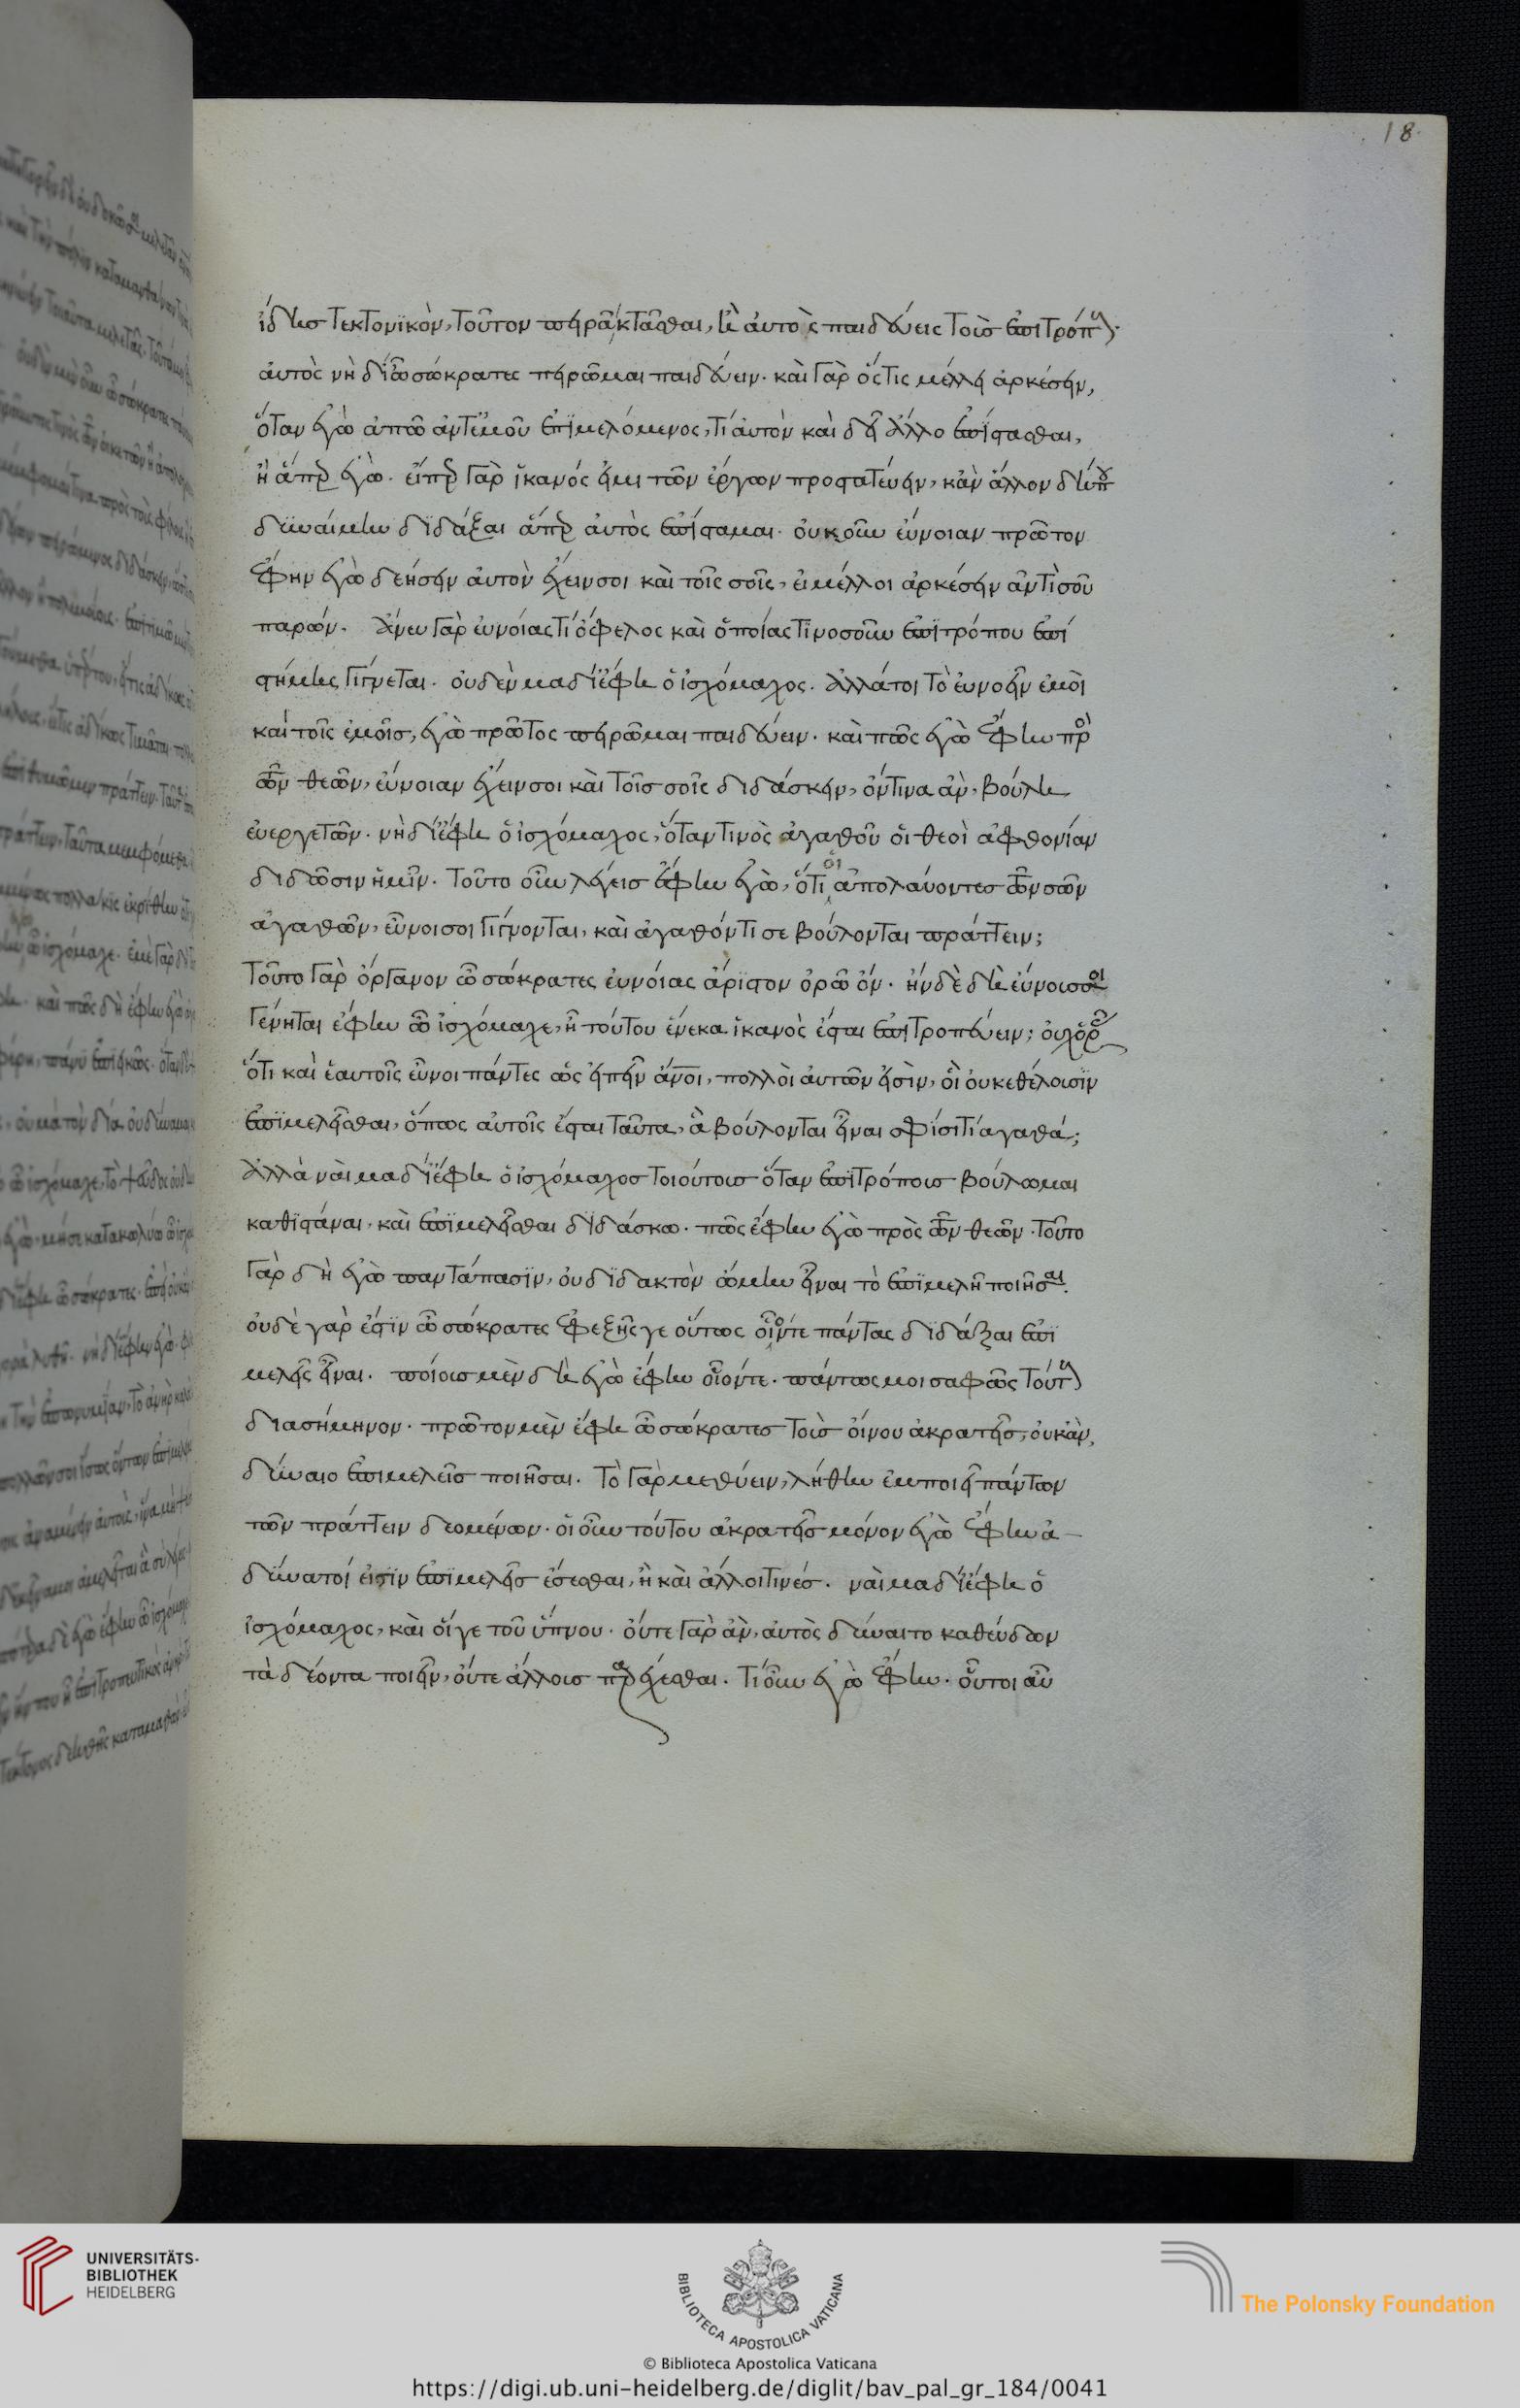 18
ἴδῃς τεκτονικὸν, τοῦτον πειρᾶ κτᾶσθαι, ἢ αὐτὸς παιδεύεις τοὺς ἐπιτρόπους.
αὐτὸς νὴ δί ὦ σώκρατες πειρῶμαι παιδεύειν. καὶ γὰρ ὅςτις μέλλει ἀρκέσειν,
ὅταν ἐγὼ ἀπῶ ἀντ ἐμοῦ ἐπιμελόμενος, τί αὐτὸν καὶ δεῖ ἄλλο ἐπίστασθαι,
ἢ ἅπερ ἐγώ. εἴπερ γὰρ ἱκανός εἰμι τῶν ἔργων προστατεύειν, κἂν ἄλλον δήπου
δυναίμην διδάξαι ἅπερ αὐτὸς ἐπίσταμαι. οὐκοῦν εὔνοιαν πρῶτον
ἔφην ἐγὼ δεήσειν αὐτὸν ἔχειν σοι καὶ τοῖς σοῖς, εἰ μέλλοι ἀρκέσειν ἀντὶ σοῦ
παρών. ἄνευ γὰρ εὐνοίας τί ὄφελος καὶ ὁποίας τινοσοῦν ἐπιτρόπου ἐπι
στήμης γίγνεται. οὐδὲν μα δί ἔφη ὁ ἰσχόμαχος. ἀλλά τοι τὸ εὐνοεῖν ἐμοὶ
καὶ τοῖς ἐμοῖς, ἐγὼ πρῶτος πειρῶμαι παιδεύειν. καὶ πῶς ἐγὼ ἔφην πρὸς
τῶν θεῶν, εὔνοιαν ἔχειν σοι καὶ τοῖς σοῖς διδάσκειν, ὅντινα ἂν, βούλη
εὐεργετῶν. νὴ δί ἔφη ὁ ἰσχόμαχος, ὅταν τινὸς ἀγαθοῦ οἱ θεοὶ ἀφθονίαν
διδῶσιν ἡμῖν. τοῦτο οὖν λέγεις ἔφην ἐγὼ, ὅτι οἱ ἀπολαύοντες τῶν σῶν
ἀγαθῶν, εὖνοι σοι γίγνονται, καὶ ἀγαθόν τι σε βούλονται πράττειν;
τοῦτο γὰρ ὄργανον ὦ σώκρατες εὐνοίας ἄριστον ὁρῶ ὄν. ἢν δὲ δὴ εὔνους σοι
γένηται ἔφην ὦ ἰσχόμαχε, ἦ τούτου ἕνεκα ἱκανὸς ἔσται ἐπιτροπεύειν; οὐχ ὁρᾶς
ὅτι καὶ ἑαυτοῖς εὖνοι πάντες ὡς εἰπεῖν ἄνοι, πολλοὶ αὐτῶν εἰσὶν, οἳ οὐκ ἐθέλουσιν
ἐπιμελεῖσθαι, ὅπως αὐτοῖς ἔσται ταῦτα, ἃ βούλονται εἶναι σφίσι τἀγαθά;
ἀλλὰ ναὶ μα δί ἔφη ὁ ἰσχόμαχος τοιούτους ὅταν ἐπιτρόπους βούλωμαι
καθιστάναι, καὶ ἐπιμελεῖσθαι διδάσκω. πῶς ἔφην ἐγὼ πρὸς τῶν θεῶν. τοῦτο
γὰρ δὴ ἐγὼ πανταπασιν, οὐ διδακτὸν ὤμην εἶναι τὸ ἐπιμελῆ ποιῆσαι.
οὐδὲ γὰρ ἔστιν ὦ σώκρατες ἐφεξῆς γε οὕτως οἷόντε πάντας διδάξαι ἐπι
μελεῖς εἶναι. ποίους μὲν δὴ ἐγὼ ἔφην οἷόντε. πάντως μοι σαφῶς τούτους
διασήμηνον. πρῶτον μὲν ἔφη ὦ σώκρατες τοὺς οἴνου ἀκρατεῖς, οὐκ ἂν,
δύναιο ἐπιμελεῖς ποιῆσαι. τὸ γὰρ μεθύειν, λήθην ἐμποιεῖ πάντων
τῶν πράττειν δεομένων. οἱ οὖν τούτου ἀκρατεῖς μόνον ἐγὼ ἔφην ἀ-
δύνατοί εἰσιν ἐπιμελεῖς ἔσεσθαι, ἢ καὶ ἄλλοι τινές. ναὶ μα δί ἔφη ὁ
ἰσχόμαχος, καὶ οἵ γε τοῦ ὕπνου. οὔτε γὰρ ἂν, αὐτὸς δύναιτο καθεύδων
τὰ δέοντα ποιεῖν, οὔτε ἄλλους παρέχεσθαι. τί οὖν ἐγὼ ἔφην. οὗτοι αὖ
UNIVERSITÄTS-
BIBLIOTHEK
HEIDELBERG
BIBLIOTECA APOSTOLICA VATICANA
The Polonsky Foundation
© Biblioteca Apostolica Vaticana
https://digi.ub.uni-heidelberg.de/diglit/bav_pal_gr_184/0041